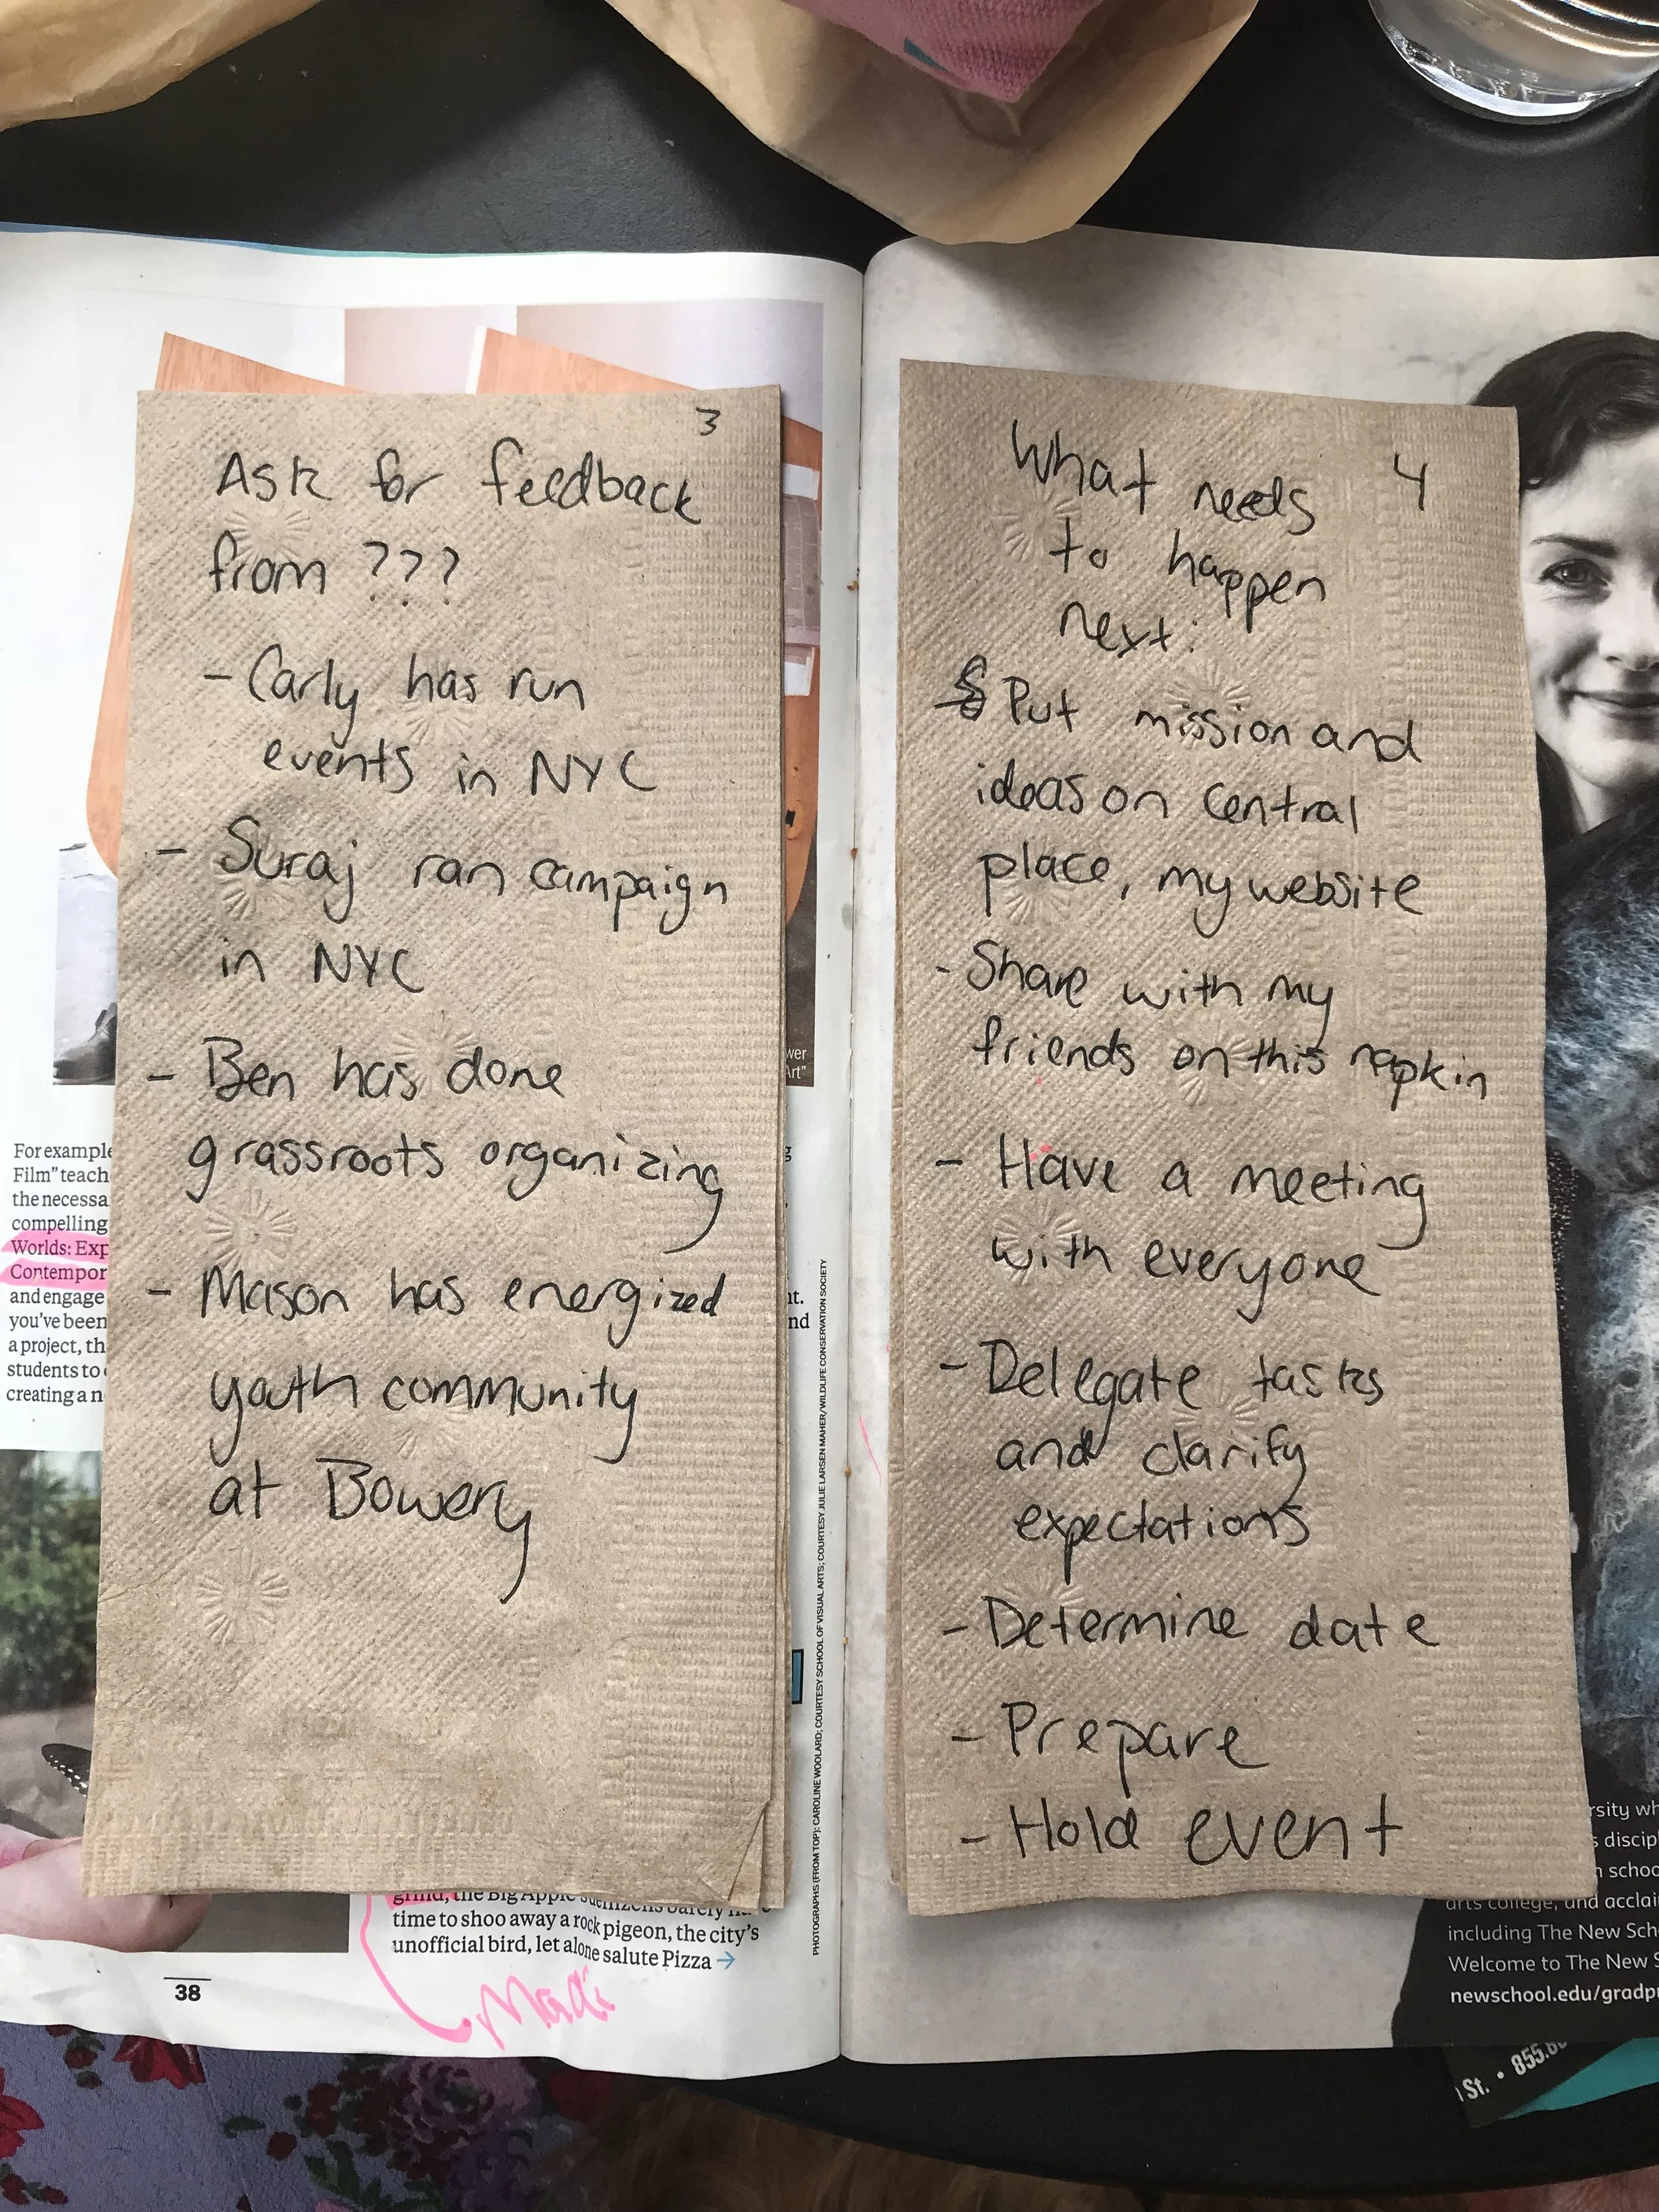 3
Ask for feedback
from ???
- Carly has run
events in NYC
- Suraj ran campaign
in NYC
- Ben has done
grassroots organizing
- Mason has energized
youth community
at Bowery
4
What needs
to happen
next:
Put mission and
ideas on central
place, my website
- Share with my
friends on this napkin
- Have a meeting
with everyone
- Delegate tasks
and clarify
expectations
- Determine date
- Prepare
- Hold event
wer
Art"
For example
Film" teach
the necessa
compelling
Worlds: Exp
Contempor
and engage
you've been
a project, th
students to
creating a n
g
nt.
nd
PHOTOGRAPHS (FROM TOP): CAROLINE WOOLARD; COURTESY SCHOOL OF VISUAL ARTS; COURTESY JULIE LARSEN MAHER/WILDLIFE CONSERVATION SOCIETY
grind, the Big Apple
time to shoo away a rock pigeon, the city's
unofficial bird, let alone salute Pizza →
38
rsity wh
s discipl
n schoo
arts college, and acclai
including The New Sch
Welcome to The New S
newschool.edu/gradp
St. • 855.